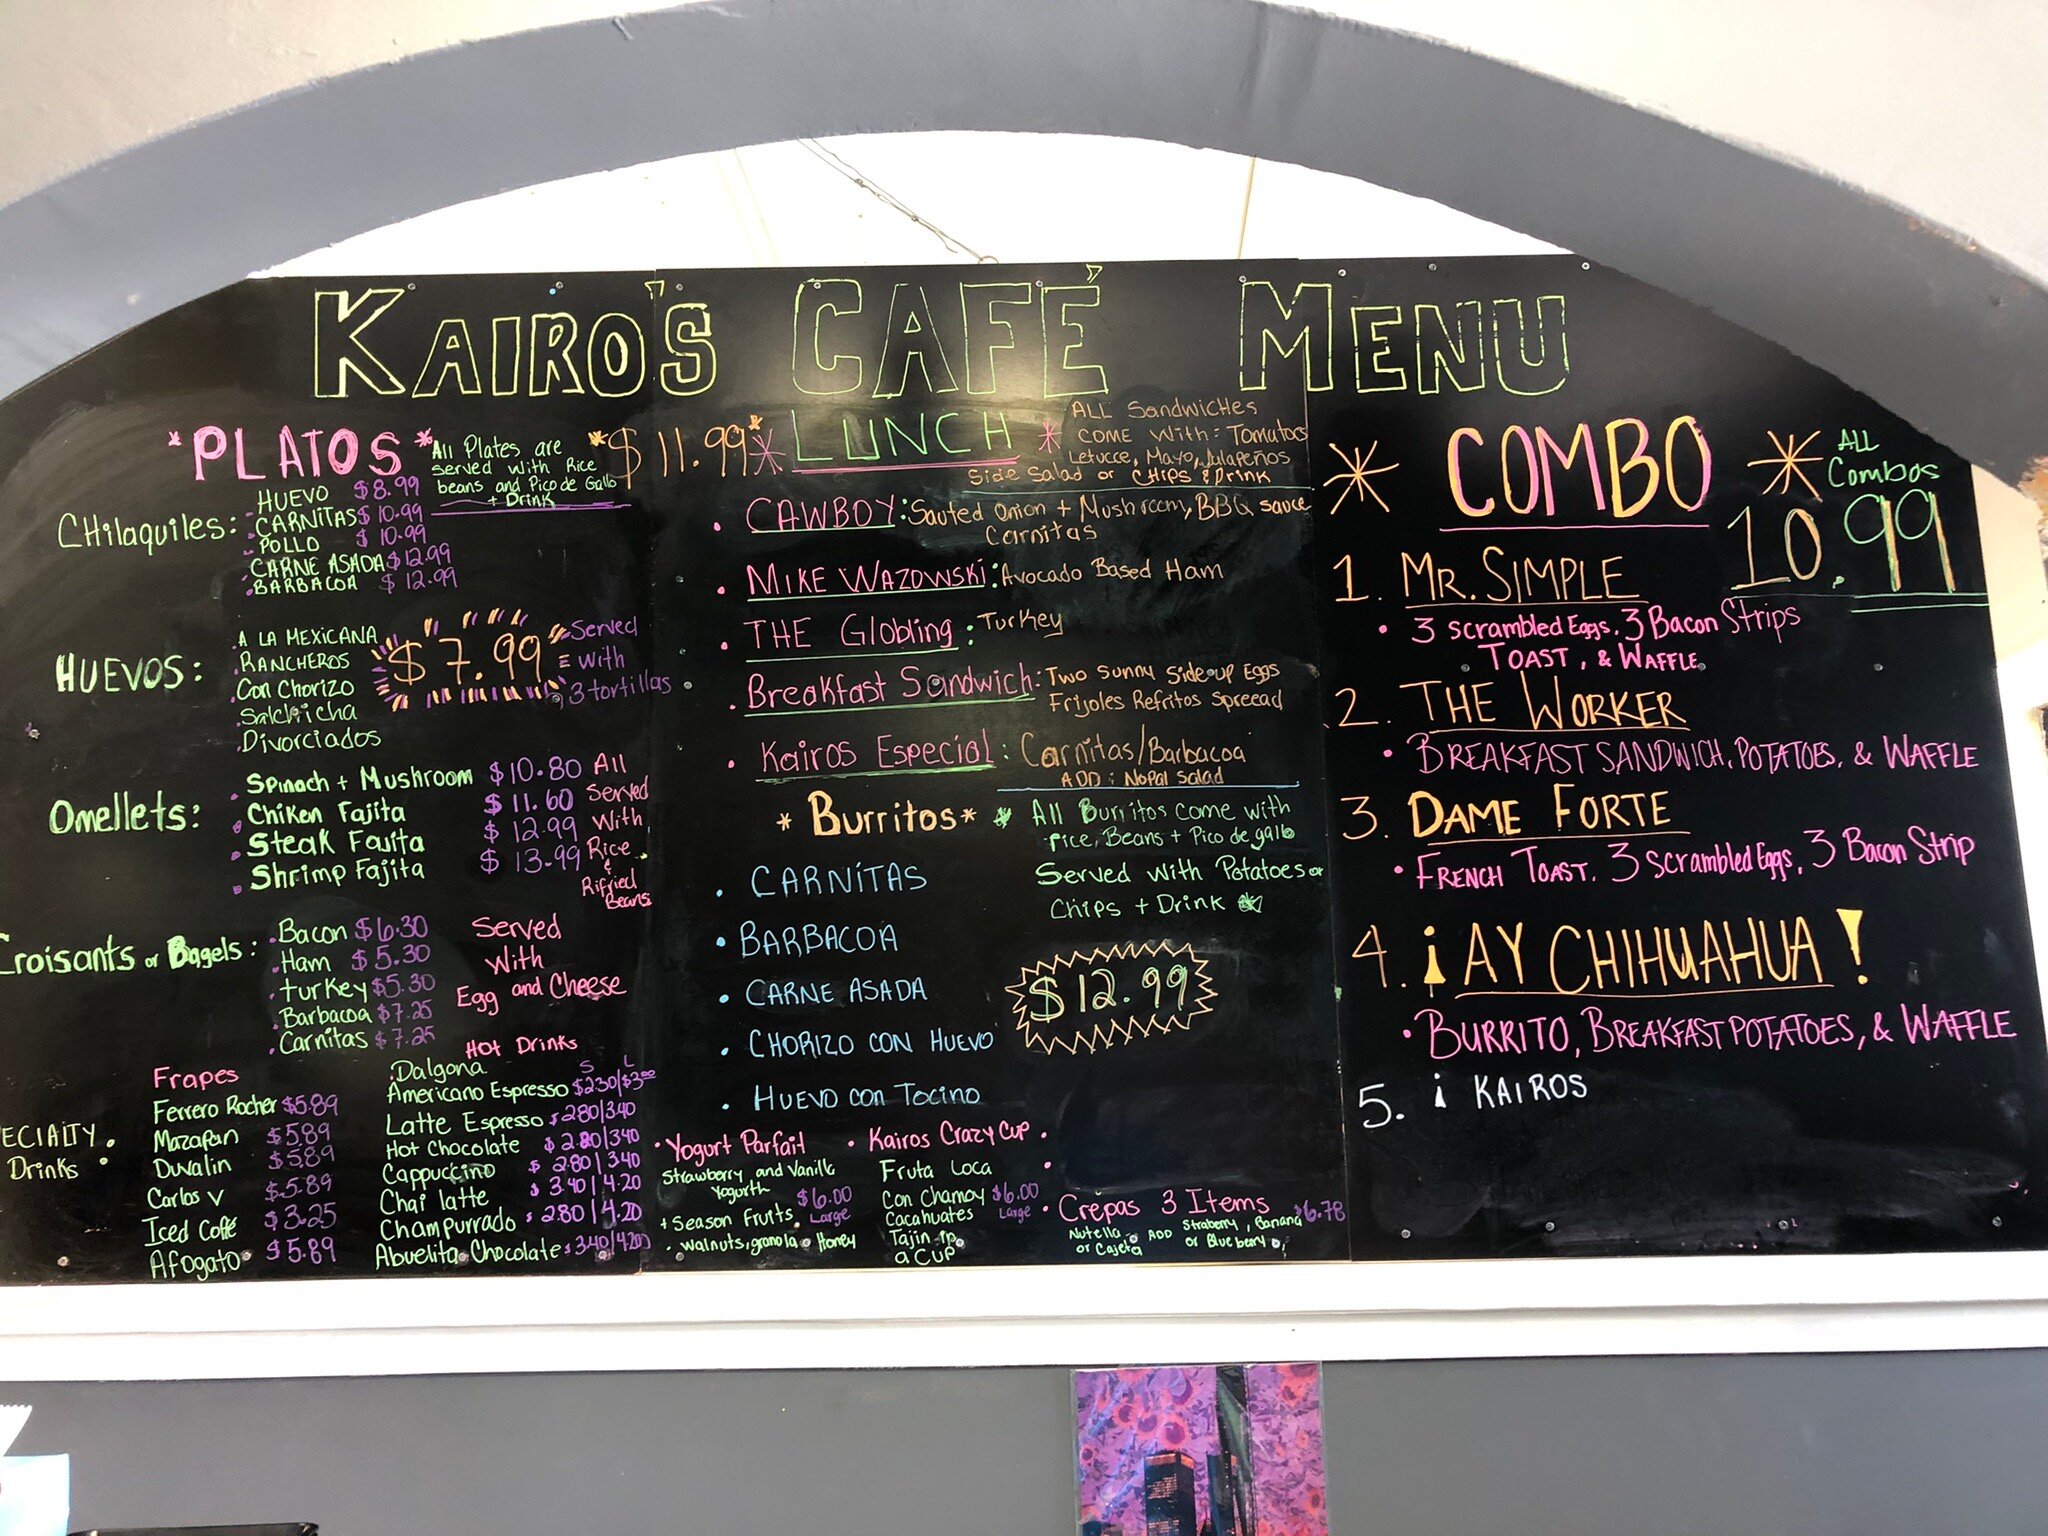 KAIRO'S CAFÉ MENU
*PLATOS*
All Plates are
served with Rice
beans and Pico de Gallo
+ Drink
*$11.99*
CHilaquiles:
. HUEVO $8.99
. CARNITAS $10.99
. POLLO $10.99
. CARNE ASADA $12.99
. BARBACOA $12.99
HUEVOS:
. A LA MEXICANA
. RANCHEROS
. Con Chorizo
. Salchicha
. Divorciados
$7.99
Served
with
3 tortillas
Omellets:
. Spinach + Mushroom $10.80
. Chiken Fajita $11.60
. Steak Fajita $12.99
. Shrimp Fajita $13.99
All
Served
With
Rice
&
Rifried
Beans
Croisants or Bagels:
. Bacon $6.30
. Ham $5.30
. turkey $5.30
. Barbacoa $7.25
. Carnitas $7.25
Served
With
Egg and Cheese
ECIALTY
Drinks
Frapes
Ferrero Rocher $5.89
Mazapan $5.89
Duvalin $5.89
Carlos V $5.89
Iced Coffé $3.25
Afogato $5.89
Hot Drinks
S L
. Dalgona
Americano Espresso $2.30/$3.00
Latte Espresso $2.80/3.40
Hot Chocolate $2.80/3.40
Cappuccino $2.80/3.40
Chai latte $3.40/4.20
Champurrado $2.80/4.20
Abuelita Chocolate $3.40/4.20
LUNCH *
ALL SandwicHes
COME With: Tomatoes
Letucce, Mayo, Jalapeños
Side Salad or CHips & Drink
. CAWBOY: Sauted Onion + Mushroom, BBQ sauce
Carnitas
. MIKE WAZOWSKI: Avocado Based Ham
. THE Globling: Turkey
. Breakfast Sandwich: Two Sunny Side up Eggs
Frijoles Refritos Spreead
. Kairos Especial: Carnitas/Barbacoa
ADD: Nopal Salad
* Burritos *
* All Burritos come with
rice, Beans + Pico de gallo
Served with Potatoes or
Chips + Drink *
. CARNITAS
. BARBACOA
. CARNE ASADA
. CHORIZO CON HUEVO
. HUEVO con Tocino
$12.99
. Yogurt Parfait
Strawberry and Vanilla
Yogurth
+ Season Fruits $6.00
Large
. Walnuts, granola Honey
. Kairos Crazy Cup .
Fruta Loca
Con Chamoy $6.00
Cacahuates Large
Tajin in
a CUP
. Crepas 3 Items $6.78
Nutella
or Cajeta
ADD
Straberry, Banana
or Blueberry
* COMBO *
ALL
Combos
10.99
1. MR. SIMPLE
• 3 Scrambled Eggs, 3 Bacon Strips
TOAST, & WAFFLE
2. THE WORKER
• BREAKFAST SANDWICH, POTATOES, & WAFFLE
3. DAME FORTE
• FRENCH TOAST, 3 Scrambled Eggs, 3 Bacon Strip
4. ¡AY CHIHUAHUA!
• BURRITO, BREAKFAST POTATOES, & WAFFLE
5. ¡ KAIROS